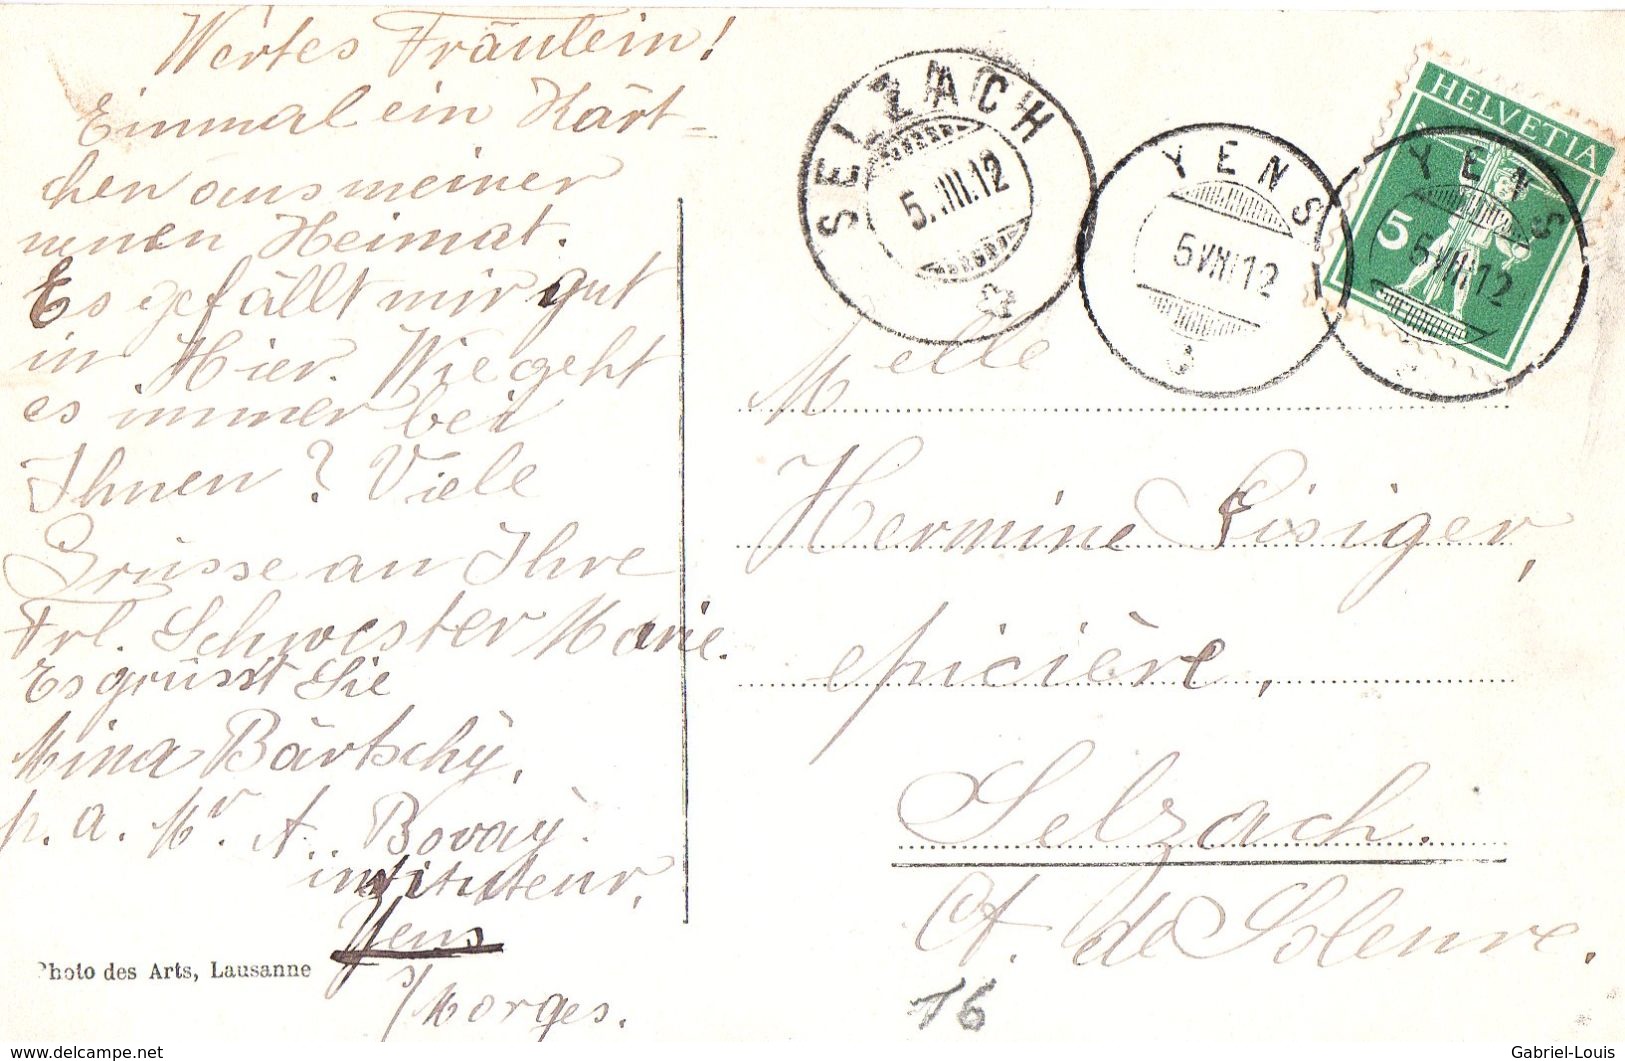 Wertes Fräulein!
Einmal ein Kärt=
chen aus meiner
neuen Heimat.
Es gefällt mir gut
in Hier. Wie geht
es immer bei
Ihnen? Viele
Grüsse an Ihre
Frl. Schwester Marie.
Es grüsst Sie
Mina Bärtschÿ,
p. a. Mr. A. Bovaÿ.
instituteur,
Yens
s/Morges.
Photo des Arts, Lausanne
SELZACH
5.VIII.12
YENS
5 VIII 12
YENS
5 VIII 12
HELVETIA
5
Melle
Hermine
épicière,
Selzach.
Ct. de Soleure.
16
www.delcampe.net
Gabriel-Louis